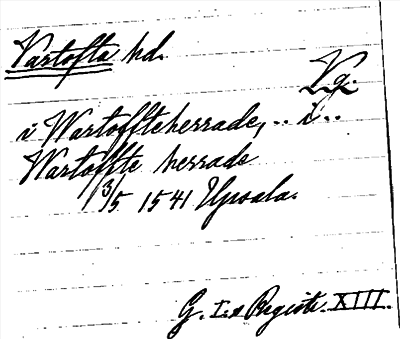 Vartofta hd.
Vg.
i Wartoffteherrade, .. i ..
Wartoffte herrade
13/5 1541 Upsala.
G. I:s Registr. XIII.